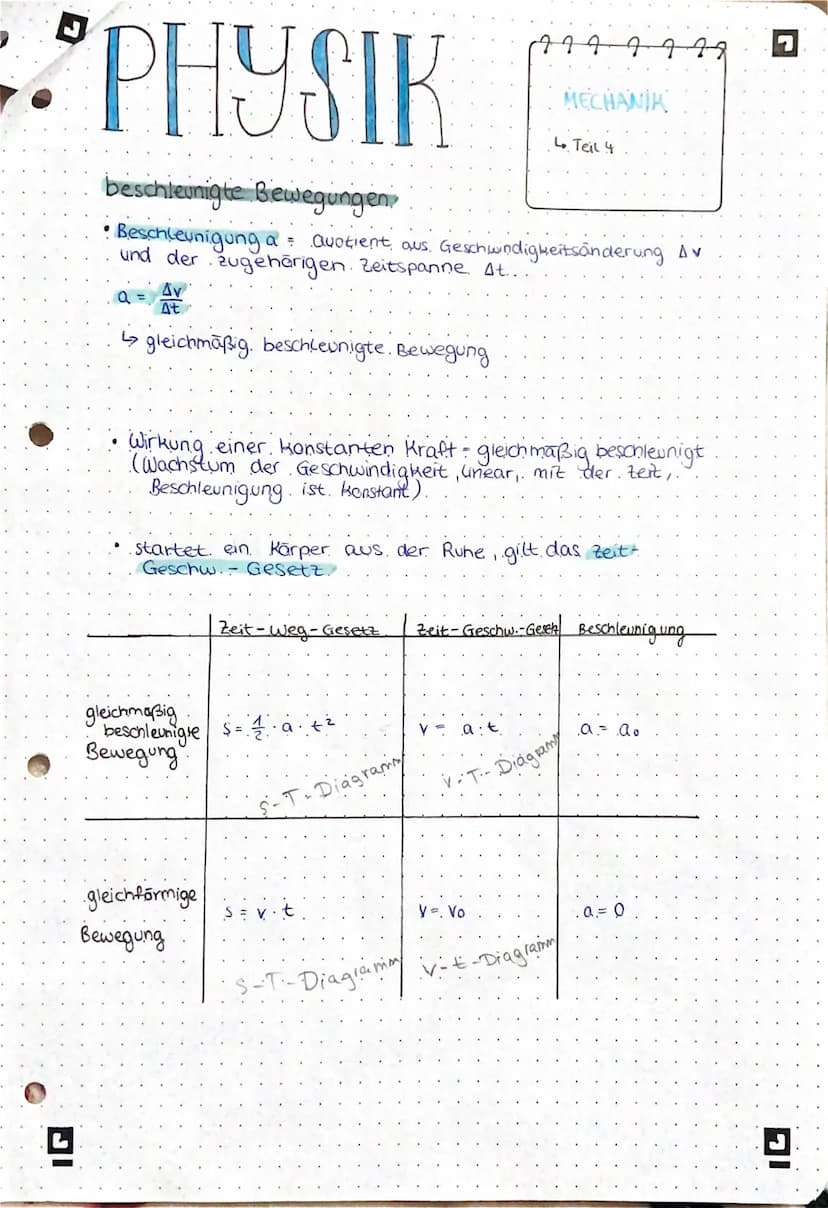 PHYSIK
MECHANIK
↳ Teil 4
beschleunigte Bewegungen
• Beschleunigung a = Quotient aus Geschwindigkeitsänderung Δv
und der zugehörigen Zeitspanne Δt.
a = Δv/Δt
↳ gleichmäßig beschleunigte Bewegung
• Wirkung einer konstanten Kraft = gleichmäßig beschleunigt
(Wachstum der Geschwindigkeit, linear, mit der Zeit,
Beschleunigung ist konstant)
• startet ein Körper aus der Ruhe, gilt das Zeit-
Geschw.-Gesetz
Zeit-Weg-Gesetz Zeit-Geschw.-Gesetz Beschleunigung
gleichmäßig
beschleunigte
Bewegung
s = 1/2 · a · t² v = a · t a = a₀
S-T-Diagramm V-T-Diagramm
gleichförmige
Bewegung
s = v · t v = v₀ a = 0
S-T-Diagramm V-t-Diagramm